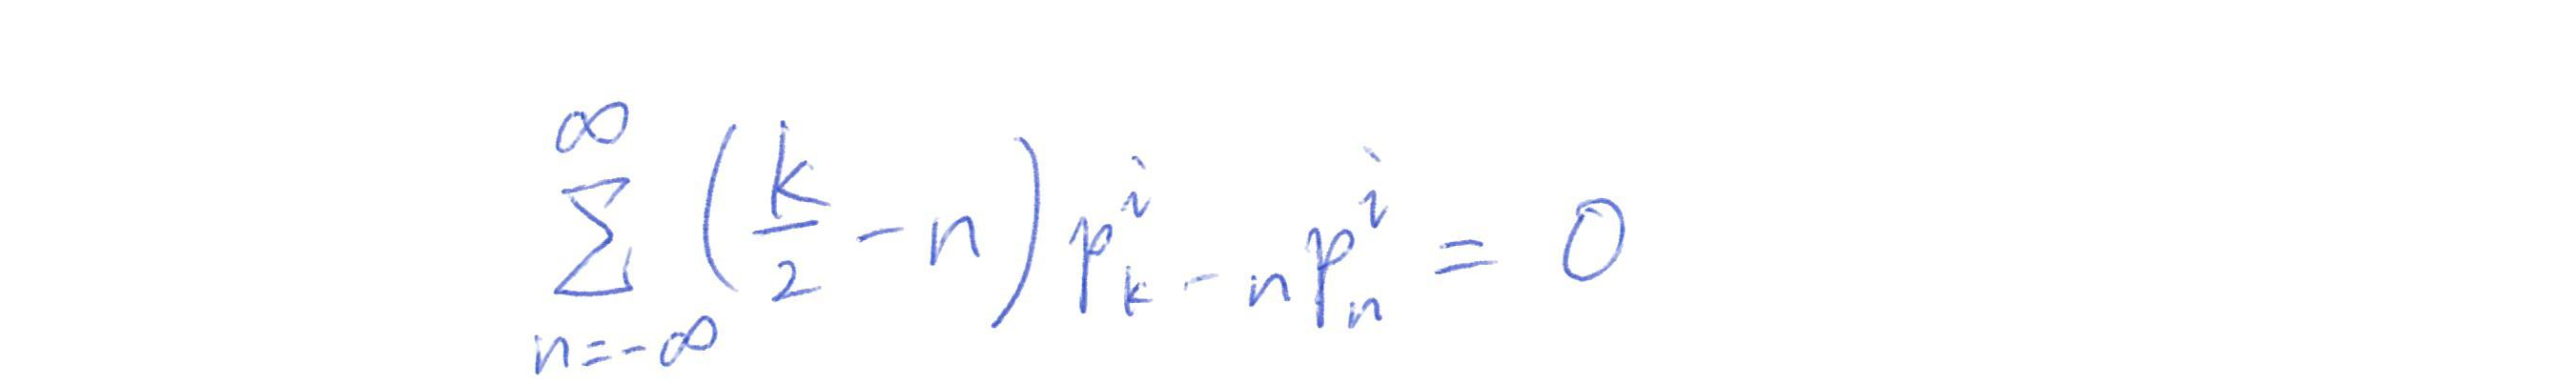 \sum_{n=-\infty}^{\infty} \left( \frac{k}{2} - n \right) p_{k-n}^{i} p_{n}^{i} = 0